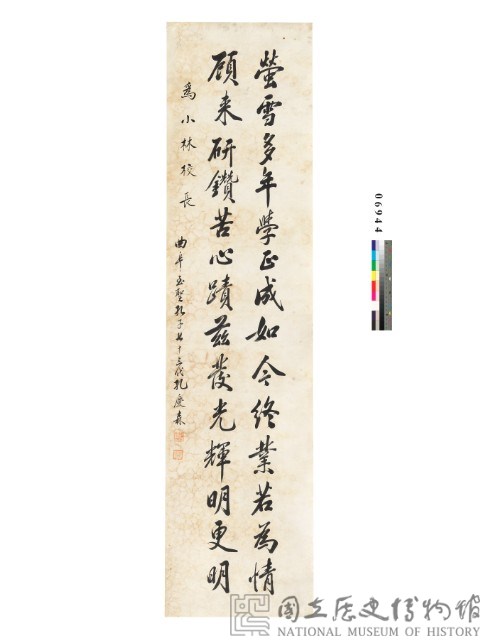 螢雪多年学正成如今終業若為情
顧来研鑽苦心蹟茲發光輝明更明
為小林校長
曲阜至聖孔子七十三代孔慶森
06944
國立歷史博物館
NATIONAL MUSEUM OF HISTORY